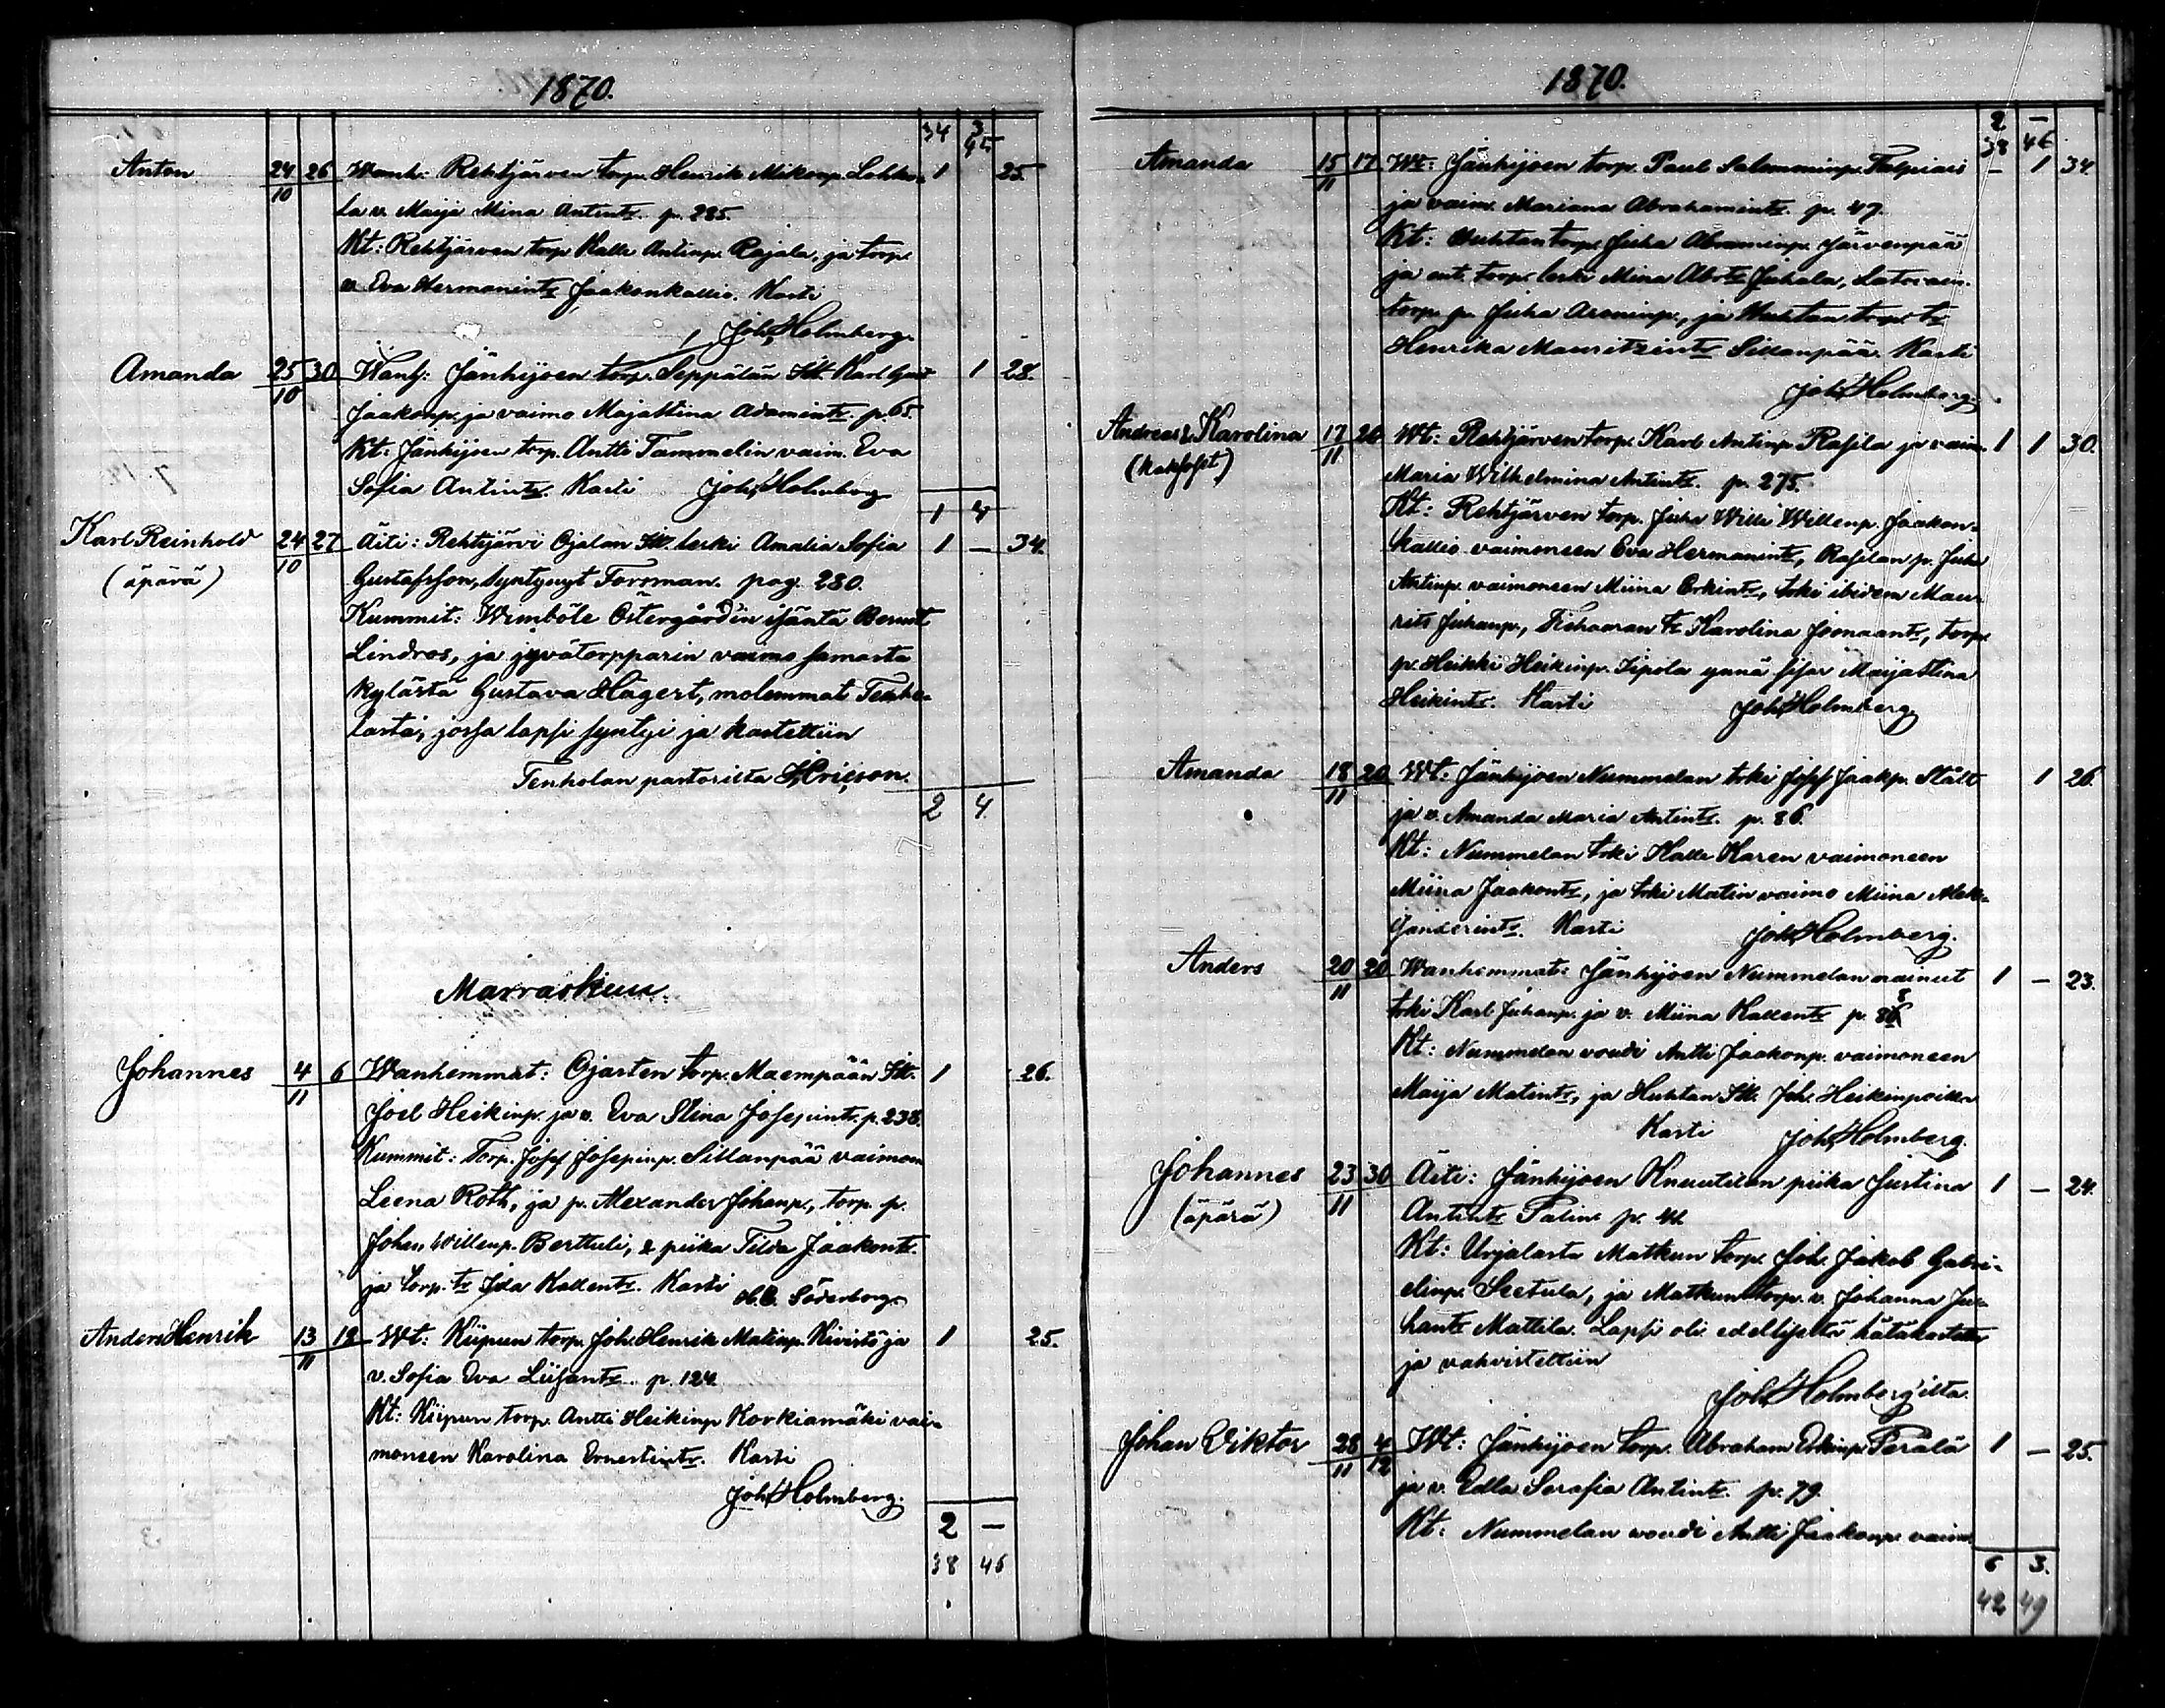 1870.
34 3 45
Anton 24/10 26 Wanh: Rehtijärven torp. Henrik Mikonp. Lahko- 1 25.
la v. Maija Mina Antintr. p. 285.
Kt: Rehtijärven torp Kalle Antinp. Rajala, ja torp.
v. Eva Hermanintr Jaakonkallio. Kasti
Joh. Holmberg.
Amanda 25/10 30 Wanh: Jänhijoen torp. Seppälän Itl. Karl Gust 1 28.
Jaakonp. ja vaimo Majastina Adamintr. p. 65.
Kt: Jänhijoen torp. Antti Tammelin vaim. Eva
Sofia Antintr. Kasti Joh. Holmberg
1 4
Karl Reinhold 24/10 27 Äiti: Rehtijärvi Ojalan Itl. leski Amalia Sofia 1 — 34.
(äpärä) Gustafsson, syntynyt Forsman. pag. 280.
Kummit: Wimböle Östergårdin isäntä Berndt
Lindros, ja jyvätorpparin vaimo samasta
kylästä Gustava Hägert, molemmat Tenho-
lasta, jossa lapsi syntyi ja kastettiin
Tenholan pastorilta
2 4.
Marraskuu.
Johannes 4/11 6 Wanhemmat: Ojasten torp. Maempään Itl. 1 26.
Joel Heikinp. ja v. Eva Stina Josepintr. p. 238.
Kummit: Torp. Josef Josepinp. Sillanpää vaimon
Leena Roth, ja p. Alexander Johanp., torp. p.
Johan Willenp. Berttuli, & piika Tilda Jaakontr.
ja torp. tr Ida Kallentr. Kasti Söderborg
Anders Henrik 13/11 18 Wt: Kiipun torp. Joh. Henrik Matinp. Kivistö ja 1 25.
v. Sofia Eva Liisantr. p. 124.
Kt: Kiipun torp. Antti Heikinp Korkiamäki vai-
moneen Karolina Ernestintr. Kasti
Joh. Holmberg.
2 —
38 46
1870.
2 —
38 46
Amanda 15/11 17 Wt: Jänhijoen torp. Paul Salomoninp. — 1 34.
ja vaim. Mariana Abrahamintr. p. 47.
Kt: Huhtan torp. Juha Abraminp. Järvenpää
ja ent. torp. leski Mina Abr.tr Juhala,
torp. p. Juha Aroninp., ja Huhtan torp. tr
Henrika Mauritzintr Sillanpää. Kasti
Joh. Holmberg.
Andreas & Karolina 17/11 20 Wt: Rehtijärven torp. Karl Antinp Rasila ja vaim. 1 1 30.
Maria Wilhelmina Antintr. p. 275.
Kt: Rehtijärven torp. Juha Wille Willenp. Jaakon-
kallio vaimoneen Eva Hermanintr, Rasilan p. Juha
Antinp. vaimoneen Miina Erkintr, trki ibidem Mau-
rits Juhanp., tr Karolina Joonaantr, torp.
p. Heikki Heikinp. Sipola ynnä sisar Maijastina
Heikintr. Kasti Joh. Holmberg
Amanda 18/11 20 Wt: Jänhijoen Nummelan trki Josef Jaakp. Ståls 1 26.
ja v. Amanda Maria Antintr. p. 86.
Kt: Nummelan trki Kalle Karen vaimoneen
Miina Jaakontr, ja trki Matin vaimo Miina Alek-
sanderintr. Kasti Joh. Holmberg.
Anders 20/11 20 Wanhemmat: Jänhijoen Nummelan nainut 1 — 23.
trki Karl Juhanp. ja v. Miina Kallentr p. 88
Kt: Nummelan voudi Antti Jaakonp. vaimoneen
Maija Matintr, ja Huhtan Itl. Joh. Heikinpoika
Kasti Joh. Holmberg.
Johannes 23/11 30 Äiti: Jänhijoen Knuutilan piika Justina 1 — 24.
(äpärä) Antintr Palin p. 41.
Kt: Urjalasta Matkun torp. Joh. Jakob Gabri-
elinp. Seetula, ja Matkun torp. v. Johanna Ju-
hantr Mattila. Lapsi oli edellisestä hätäkastettu
ja vahvistettiin
Joh. Holmbergilta.
Johan Viktor 28/11 4/12 Wt: Jänhijoen torp. Abraham Erkinp Perälä 1 — 25.
ja v. Edla Serafia Antintr. p. 79.
Kt: Nummelan voudi Antti Jaakonp. vaimo-
6 3.
42 49